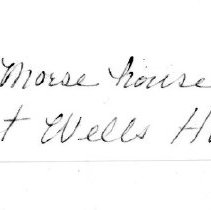 Morse house
t Wells H